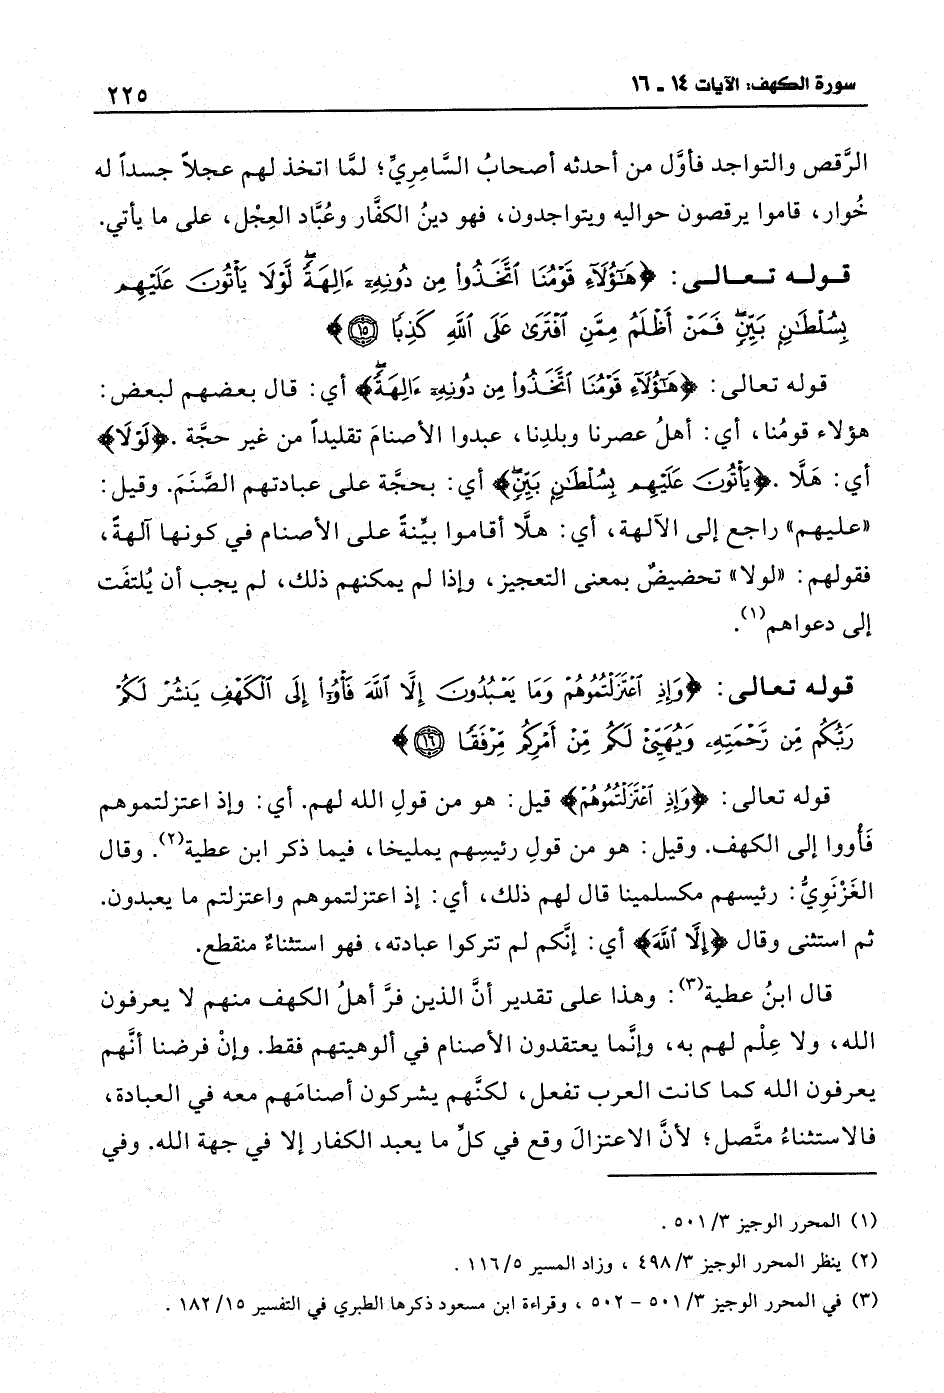 سورة الكهف: الآيات ١٤ - ١٦
٢٢٥
الرَّقص والتواجد فأوَّل من أحدثه أصحابُ السَّامِرِيِّ؛ لمَّا اتخذ لهم عجلاً جسداً له
خُوار، قاموا يرقصون حواليه ويتواجدون، فهو دينُ الكفَّار وعُبَّاد العِجْل، على ما يأتي.
قوله تعالى: ﴿هَٰٓؤُلَآءِ قَوۡمُنَا ٱتَّخَذُواْ مِن دُونِهِۦٓ ءَالِهَةٗۖ لَّوۡلَا يَأۡتُونَ عَلَيۡهِم
بِسُلۡطَٰنِۭ بَيِّنٖۖ فَمَنۡ أَظۡلَمُ مِمَّنِ ٱفۡتَرَىٰ عَلَى ٱللَّهِ كَذِبٗا ١٥﴾
قوله تعالى: ﴿هَٰٓؤُلَآءِ قَوۡمُنَا ٱتَّخَذُواْ مِن دُونِهِۦٓ ءَالِهَةٗۖ﴾ أي: قال بعضهم لبعض:
هؤلاء قومُنا، أي: أهلُ عصرنا وبلدِنا، عبدوا الأصنامَ تقليداً من غير حجَّة. ﴿لَوۡلَا﴾
أي: هَلَّا. ﴿يَأۡتُونَ عَلَيۡهِم بِسُلۡطَٰنِۭ بَيِّنٖۖ﴾ أي: بحجَّة على عبادتهم الصَّنَمَ. وقيل:
«عليهم» راجع إلى الآلهة، أي: هلَّا أقاموا بيِّنةً على الأصنام في كونها آلهةً،
فقولهم: «لولا» تحضيضٌ بمعنى التعجيز، وإذا لم يمكنهم ذلك، لم يجب أن يُلتفَت
إلى دعواهم(١).
قوله تعالى: ﴿وَإِذِ ٱعۡتَزَلۡتُمُوهُمۡ وَمَا يَعۡبُدُونَ إِلَّا ٱللَّهَ فَأۡوُۥٓاْ إِلَى ٱلۡكَهۡفِ يَنشُرۡ لَكُمۡ
رَبُّكُم مِّن رَّحۡمَتِهِۦ وَيُهَيِّئۡ لَكُم مِّنۡ أَمۡرِكُم مِّرۡفَقٗا ١٦﴾
قوله تعالى: ﴿وَإِذِ ٱعۡتَزَلۡتُمُوهُمۡ﴾ قيل: هو من قولِ الله لهم. أي: وإذ اعتزلتموهم
فَأْووا إلى الكهف. وقيل: هو من قولِ رئيسِهم يمليخا، فيما ذكر ابن عطية(٢). وقال
الغَزْنَوِيُّ: رئيسهم مكسلمينا قال لهم ذلك، أي: إذ اعتزلتموهم واعتزلتم ما يعبدون.
ثم استثنى وقال ﴿إِلَّا ٱللَّهَ﴾ أي: إنَّكم لم تتركوا عبادته، فهو استثناءٌ منقطع.
قال ابنُ عطية(٣): وهذا على تقدير أنَّ الذين فرَّ أهلُ الكهف منهم لا يعرفون
الله، ولا عِلْم لهم به، وإنَّما يعتقدون الأصنام في ألوهيتهم فقط. وإنْ فرضنا أنَّهم
يعرفون الله كما كانت العرب تفعل، لكنَّهم يشركون أصنامَهم معه في العبادة،
فالاستثناءُ متَّصل؛ لأنَّ الاعتزالَ وقع في كلِّ ما يعبد الكفار إلا في جهة الله. وفي
(١) المحرر الوجيز ٥٠١/٣ .
(٢) ينظر المحرر الوجيز ٤٩٨/٣ ، وزاد المسير ١١٦/٥ .
(٣) في المحرر الوجيز ٥٠١/٣ - ٥٠٢ ، وقراءة ابن مسعود ذكرها الطبري في التفسير ١٨٢/١٥ .